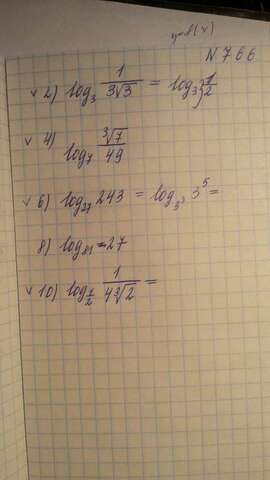 y=f(x)
N 766
v 2) log₃ 1/(3√3) = log₃ 1/2
v 4) log₇ ∛7/49
v 6) log₂₇ 243 = log₃³ 3⁵ =
8) log₈₁ = 27
v 10) log_(1/2) 1/(4∛2) =